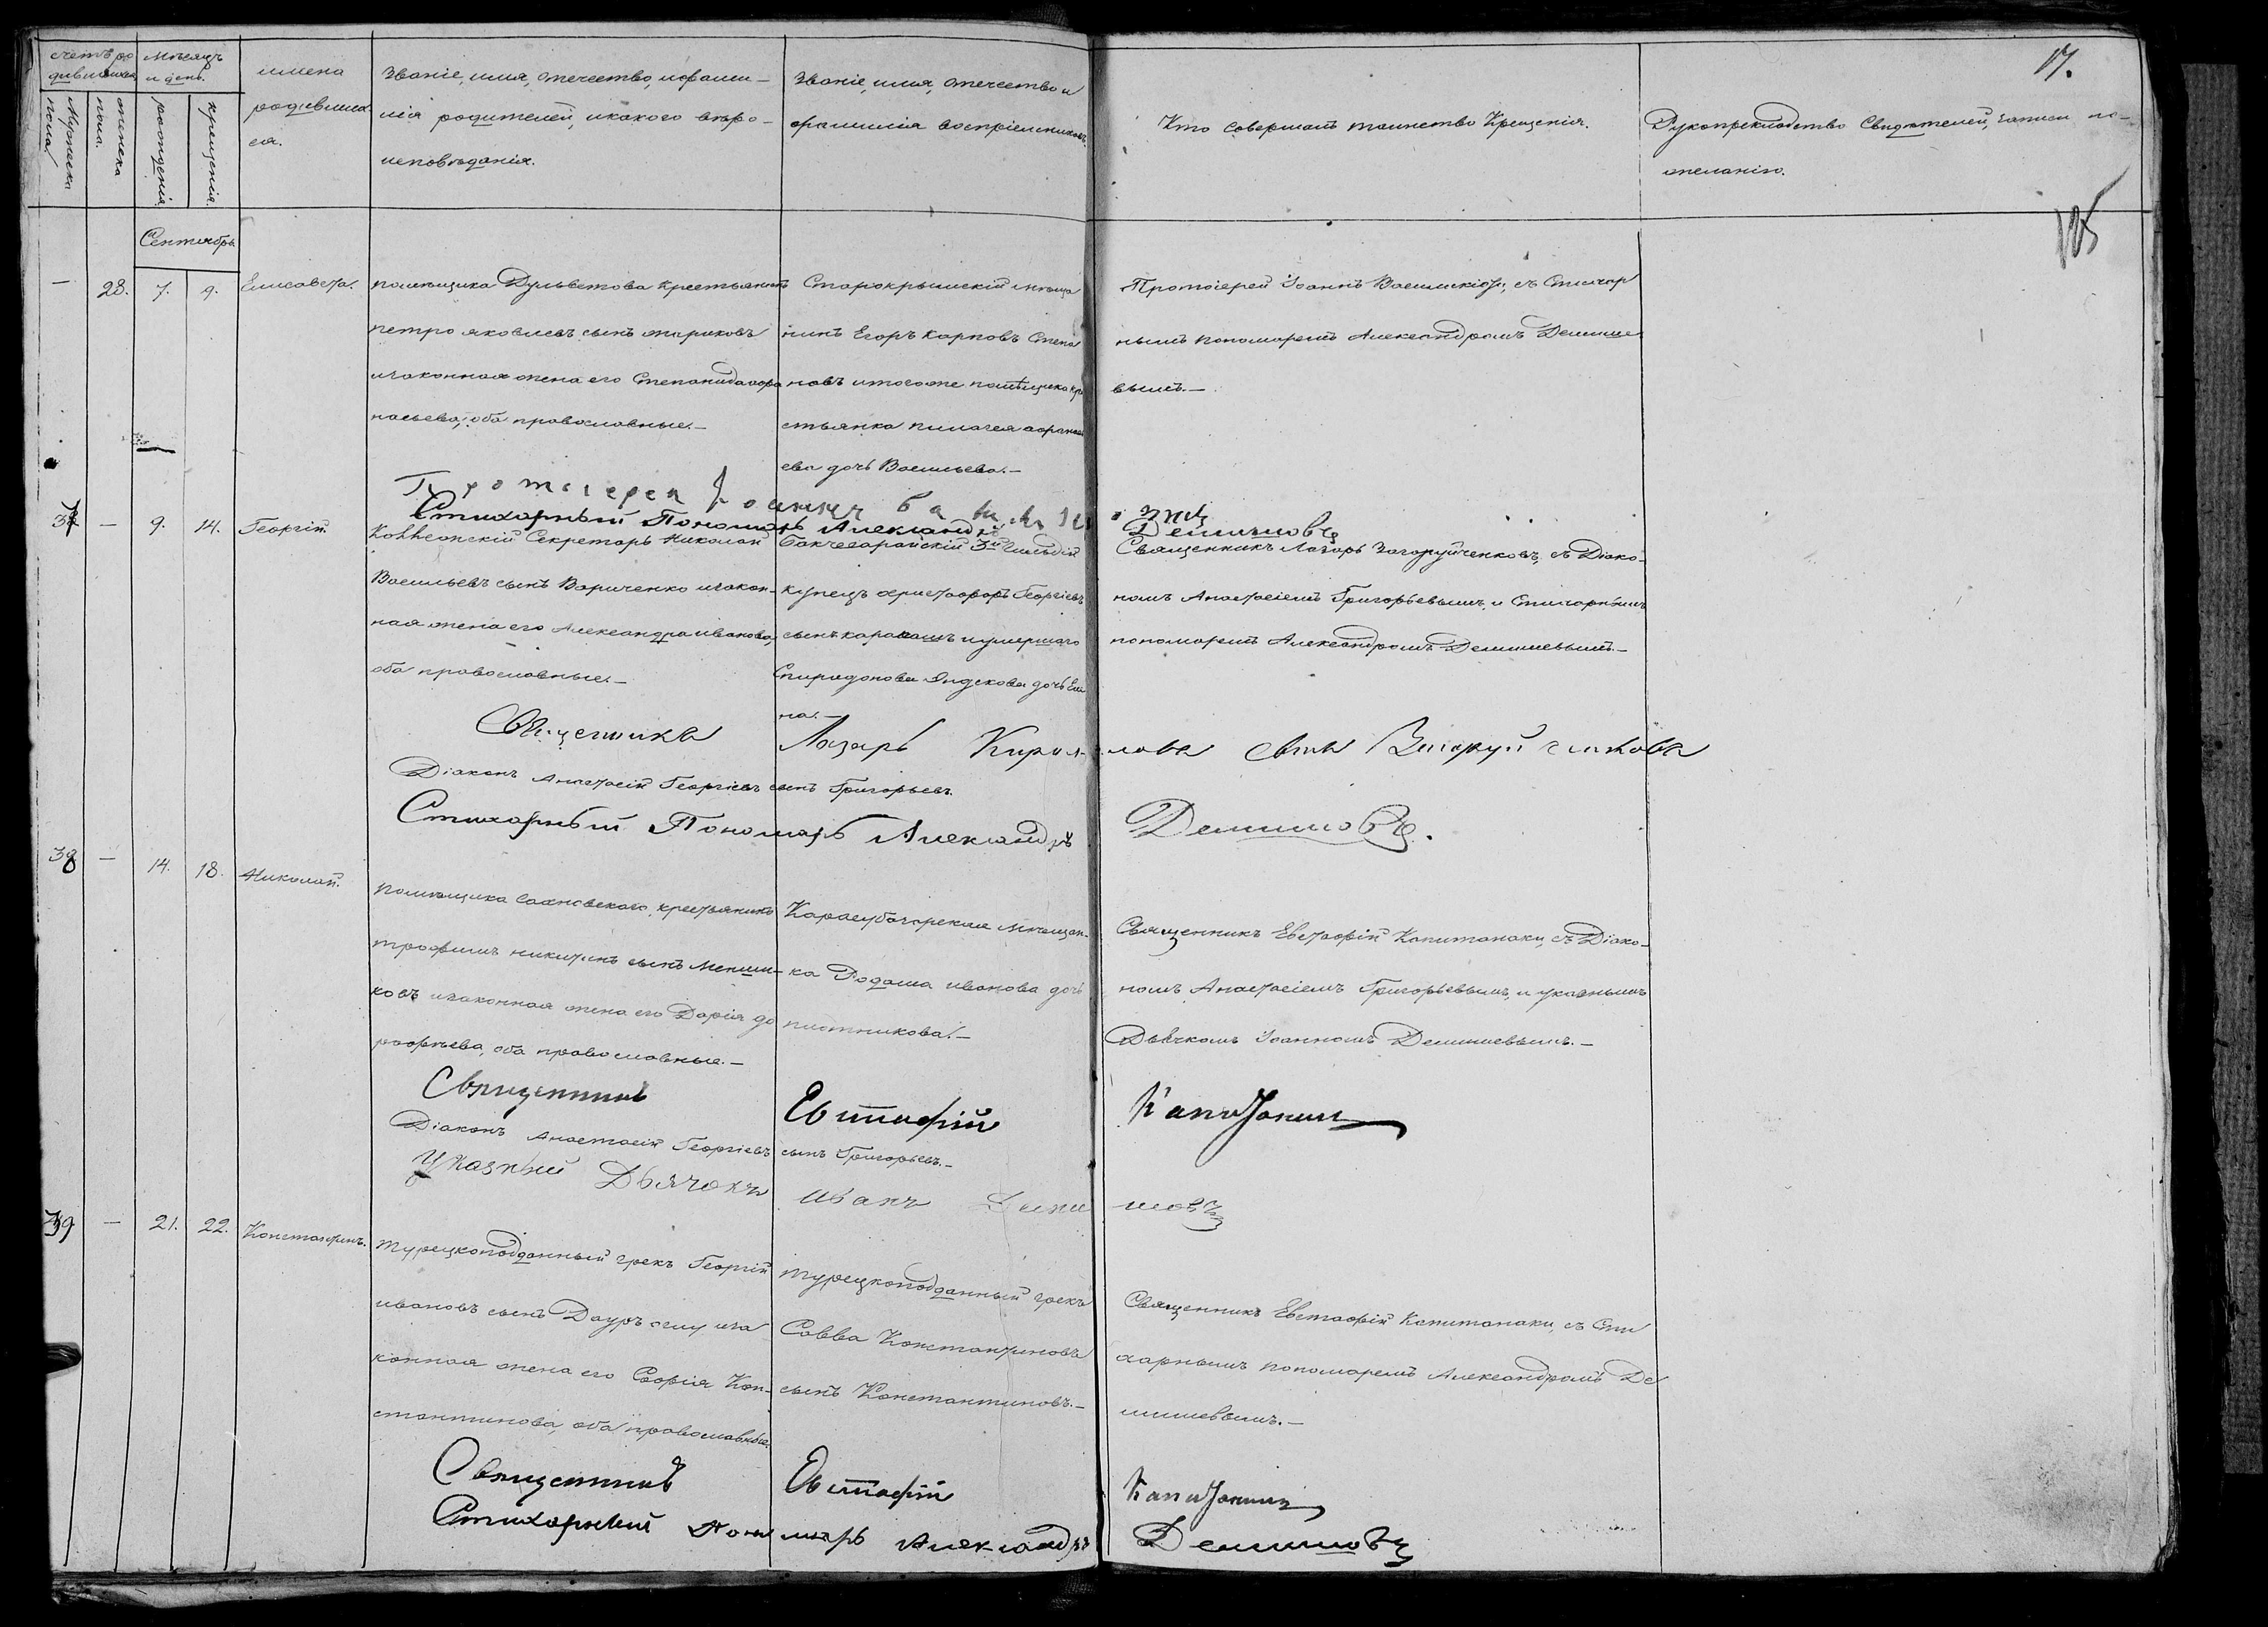 17.
125
счетъ ро
дившихся
Мужеска
пола
женска
пола.
Мѣсяцъ
и день.
рожденія
крещенія.
имена
родивших
ся.
Званіе, имя, отчество, и фами-
лія родителей, и какого вѣро-
исповѣданія.
Званіе, имя, отчество и
фамилія воспріемниковъ.
Кто совершалъ таинство Крещенія.
Рукоприкладство Свидѣтелей, записи по-
желанію.
Сентябрь
— 28. 7. 9. Елисавета.
помѣщика Дульветова крестьянинъ
петро яковлевъ сынъ жариковъ
и законная жена его Степанида афа
насьева, оба православные.—
Старокрымскій мѣща
нинъ Егоръ карповъ Степа
новъ и тогоже помѣщика кре
стьянка пилагея афанась
ева дочь Васильева.—
Протоіерей Іоаннъ Васильскіой, съ Стихар
нымъ пономаремъ Александромъ Демише
вымъ.—
Протоіерей Іоаннъ
Стихарный Пономарь Александръ Демишовъ
37 — 9. 14. Георгій.
Секретарь Николай
Васильевъ сынъ Вариченко и закон-
ная жена его Александра иванова,
оба православные.—
Бакчесарайскій 3й гильдіи
купецъ христофоръ Георгіевъ
сынъ карамашъ и умершаго
Спиридонова Яндекова дочь Еле
на.—
Священникъ Лазарь Загоруйченковъ, съ Діако-
номъ Анастасіемъ Григорьевымъ и Стихарнымъ
пономаремъ Александромъ Демишевымъ.—
Священника Лазарь Кирил-лова сынъ
Діаконъ Анастасій Георгіевъ сынъ Григорьевъ.
Стихарный Пономарь Александръ Демишовъ.
38 — 14. 18. Николай.
помѣщика Сахновскаго, крестьянинъ
трофимъ никитинъ сынъ Менши-
ковъ и законная жена его Дарія до
рофѣева, оба православные.—
Карасубазарская мѣщан-
ка Додаша иванова дочь
плотникова.—
Священникъ Евстафій Капитанаки, съ Діако-
номъ Анастасіемъ Григорьевымъ, и указнымъ
Дьячкомъ Іоанномъ Демишевымъ.—
Священникъ Евстафій Капитанаки
Діаконъ Анастасій Георгіевъ сынъ Григорьевъ.—
Указный Дьячокъ Иванъ Демишовъ
39 — 21. 22. Константинъ.
турецкоподданный грекъ Георгій
ивановъ сынъ Дауръ оглу и за
конная жена его Софія Кон-
стантинова, оба православные.
турецкоподданный грекъ
Савва Константиновъ
сынъ Константиновъ.—
Священникъ Евстафій Капитанаки, съ Сти
харнымъ пономаремъ Александромъ Де
мишевымъ.—
Священникъ Евстафій Капитанаки
Стихарный Пономарь Александръ Демишовъ